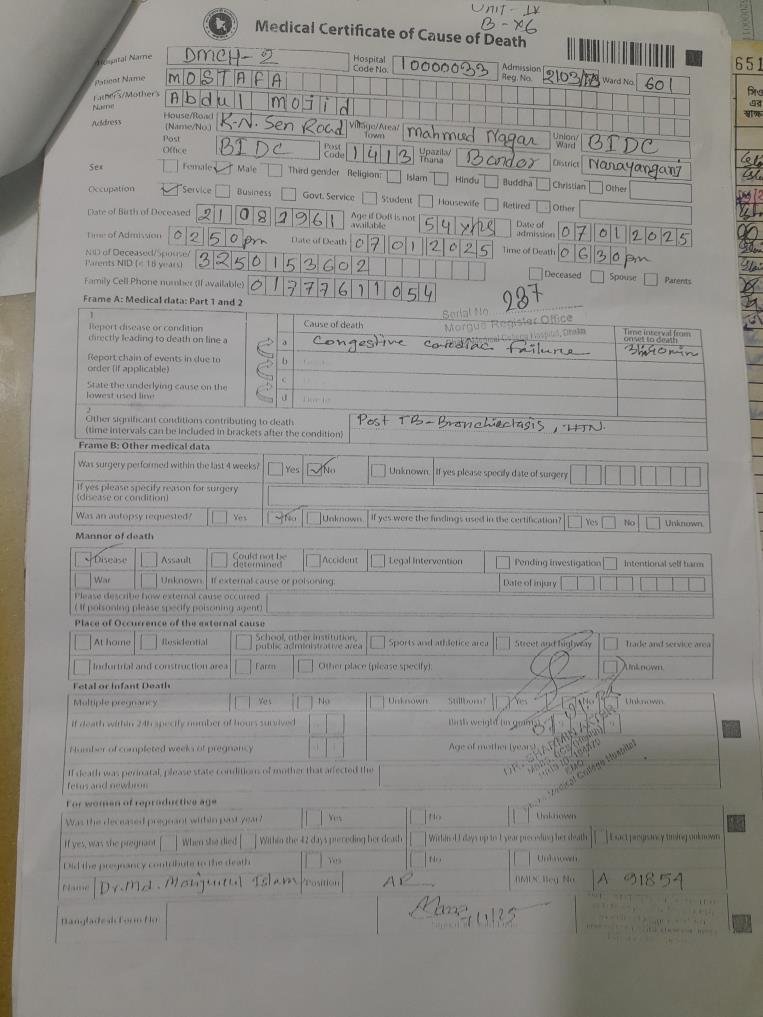 UNIT-IX
B-X6
Medical Certificate of Cause of Death
Hospital Name DMCH-2 Hospital Code No. 10000033 Admission Reg. No. Ward No. 601
651
Patient Name MOSTAFA
Father's/Mother's Name Abdul mojid
Address House/Road (Name/No.) K.N. Sen Road Village/Area/Town Mahmud Nagar Union/Ward BIDC
Post Office BIDC Post Code 1413 Upazila/Thana Bandor District Narayanganj
Sex Female Male Third gender Religion: Islam Hindu Buddha Christian Other
Occupation Service Business Govt. Service Student Housewife Retired Other
Date of Birth of Deceased 21081961 Age if DoB is not available 54 yrs Date of admission 07012025
Time of Admission 0250pm Date of Death 07012025 Time of Death 0630pm
NID of Deceased/Spouse/Parents NID (< 18 years) 3250153602 Deceased Spouse Parents
Family Cell Phone number (If available) 01777611054
287
Serial No
Morgue Register Office
Medical College Hospital, Dhaka
Frame A: Medical data: Part 1 and 2
1
Report disease or condition directly leading to death on line a
Cause of death
Time interval from onset to death
a Congestive cardiac failure
Report chain of events in due to order (if applicable)
b
c
State the underlying cause on the lowest used line
d
2
Other significant conditions contributing to death (time intervals can be included in brackets after the condition) Post TB-Bronchiectasis, HTN.
Frame B: Other medical data
Was surgery performed within the last 4 weeks? Yes No Unknown. If yes please specify date of surgery
If yes please specify reason for surgery (disease or condition)
Was an autopsy requested? Yes No Unknown. If yes were the findings used in the certification? Yes No Unknown.
Manner of death
Disease Assault Could not be determined Accident Legal Intervention Pending investigation Intentional self harm
War Unknown If external cause or poisoning: Date of injury
Please describe how external cause occurred (If poisoning please specify poisoning agent)
Place of Occurrence of the external cause
At home Residential School, other institution, public administrative area Sports and athletice area Street and highway Trade and service area
Indurtrial and construction area Farm Other place (please specify): Unknown.
Fetal or Infant Death
Multiple pregnancy Yes No Unknown Stillborn? Yes No Unknown.
If death within 24h specify number of hours survived Birth weight (in grams)
Number of completed weeks of pregnancy Age of mother (years)
DR. SHARMIN AKTER
EMO
Medical College Hospital
If death was perinatal, please state conditions of mother that affected the fetus and newbron
For women of reproductive age
Was the deceased pregnant within past year? Yes No Unknown
If yes, was she pregnant When she died Within the 42 days preceding her death Within 43 days up to 1 year preceding her death Exact pregnancy timing unknown
Did the pregnancy contribute to the death Yes No Unknown
Name Dr. Md. Monjurul Islam Position AR BMDC Reg. No. A 91854
Bangladesh Form No.